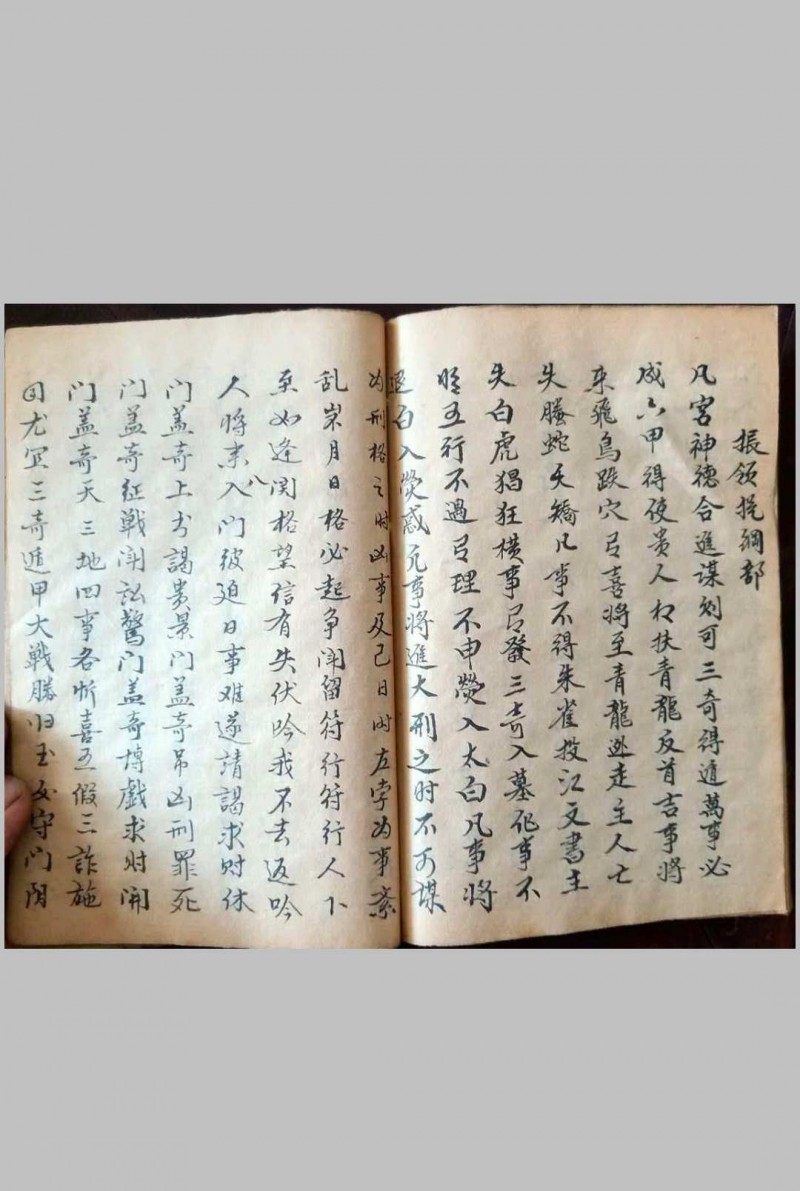 振领提綱部
凡宫神德合進谋则可三奇得逰萬事必
成六甲得使贵人相扶青龍反首吉事将
来飛鸟跌穴有喜将至青龍迯走主人亡
失螣蛇夭矯凡事不得朱雀投江文書主
失白虎猖狂横事有發三奇入墓凡事不
明五行不遇有理不申熒入太白凡事将
退白入熒惑凡事将進大刑之时不可谋
为刑格之时凶事及己日时左孛为事紊
乱岁月日格必起争闹留符行符行人卜
至如逢関格望信有失伏吟我不去返吟
人將来入八门彼廹日事难遂請謁求财休
门盖竒上书謁贵景门盖竒吊凶刑罪死
门盖竒征戦闹訟驚门盖竒博戲求财開
门盖竒天三地四事各忻喜五假三詐施
回尤宜三竒遁甲大戦勝归玉女守门阴